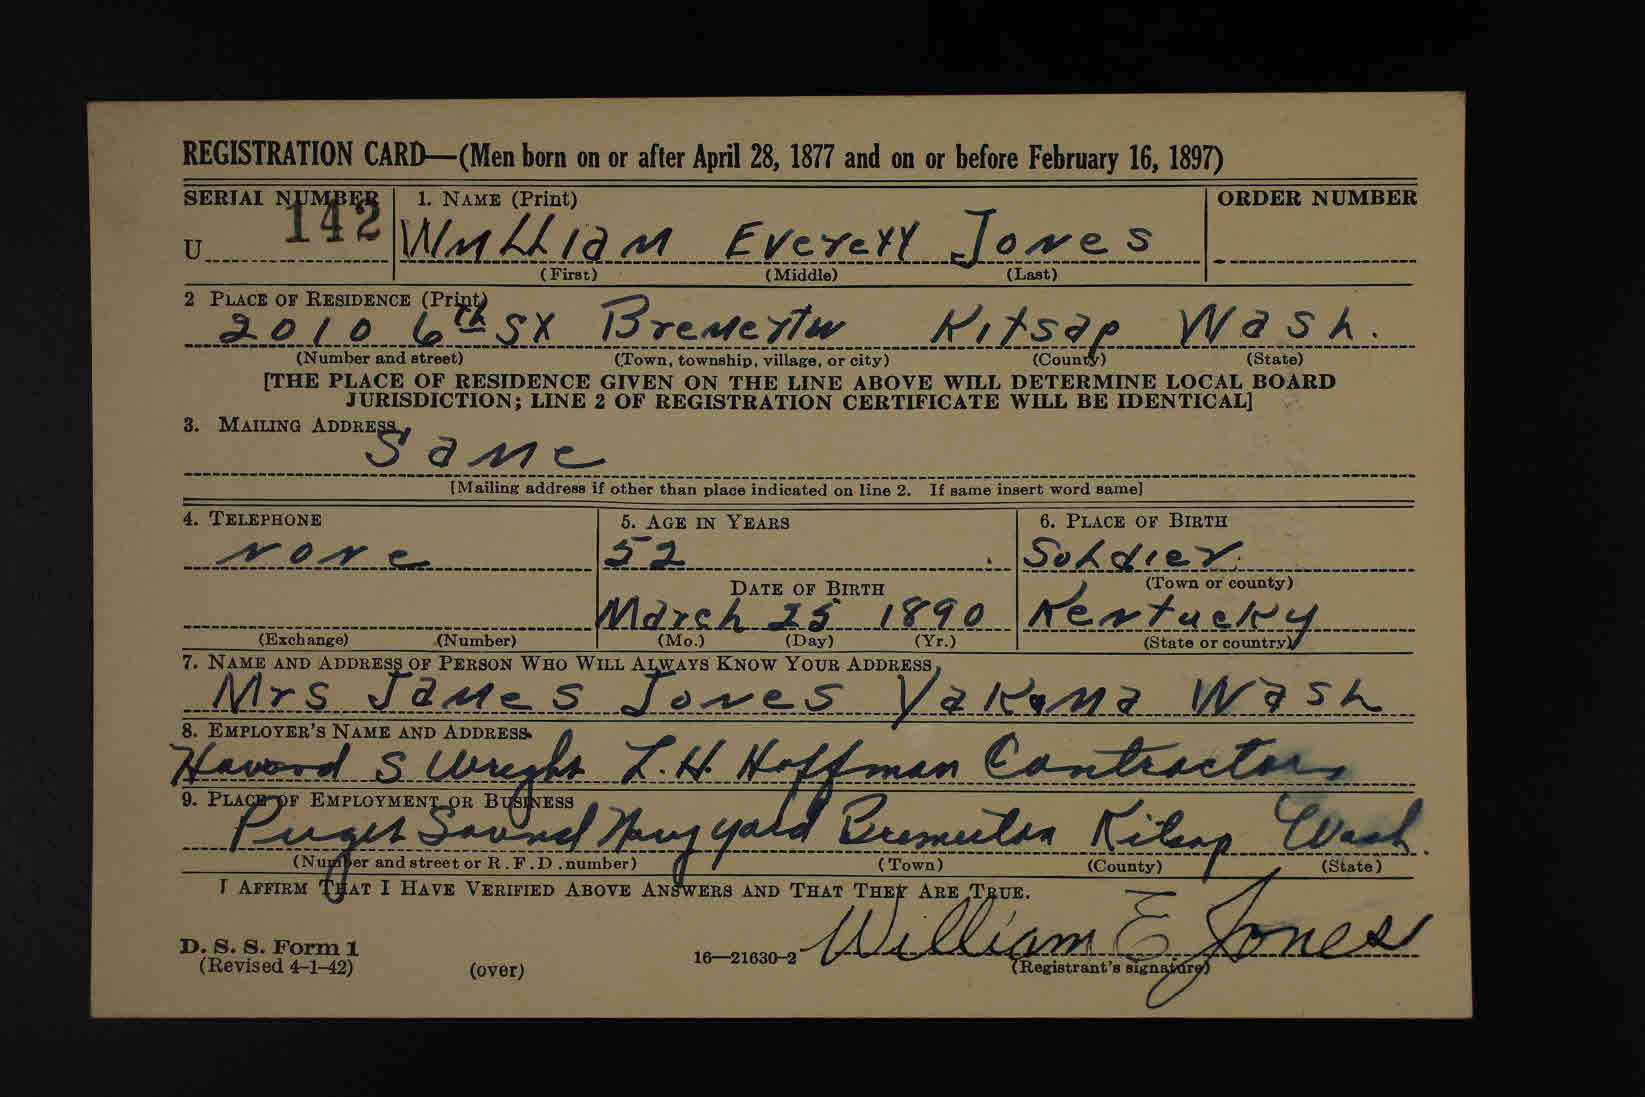 REGISTRATION CARD—(Men born on or after April 28, 1877 and on or before February 16, 1897)
SERIAL NUMBER 1. NAME (Print) ORDER NUMBER
U 142 William Everett Jones
(First) (Middle) (Last)
2 PLACE OF RESIDENCE (Print)
2010 6th St Bremerton Kitsap Wash.
(Number and street) (Town, township, village, or city) (County) (State)
[THE PLACE OF RESIDENCE GIVEN ON THE LINE ABOVE WILL DETERMINE LOCAL BOARD
JURISDICTION; LINE 2 OF REGISTRATION CERTIFICATE WILL BE IDENTICAL]
3. MAILING ADDRESS
Same
[Mailing address if other than place indicated on line 2. If same insert word same]
4. TELEPHONE 5. AGE IN YEARS 6. PLACE OF BIRTH
none 52 Soldier
(Town or county)
DATE OF BIRTH
March 25 1890 Kentucky
(Exchange) (Number) (Mo.) (Day) (Yr.) (State or country)
7. NAME AND ADDRESS OF PERSON WHO WILL ALWAYS KNOW YOUR ADDRESS
Mrs James Jones Yakama Wash
8. EMPLOYER'S NAME AND ADDRESS
Howard S Wright L.H. Hoffman Contractors
9. PLACE OF EMPLOYMENT OR BUSINESS
Puget Sound Navy yard Bremerton Kitsap Wash.
(Number and street or R. F. D. number) (Town) (County) (State)
I AFFIRM THAT I HAVE VERIFIED ABOVE ANSWERS AND THAT THEY ARE TRUE.
William E Jones
D. S. S. Form 1
(Revised 4-1-42) (over) 16—21630-2 (Registrant's signature)